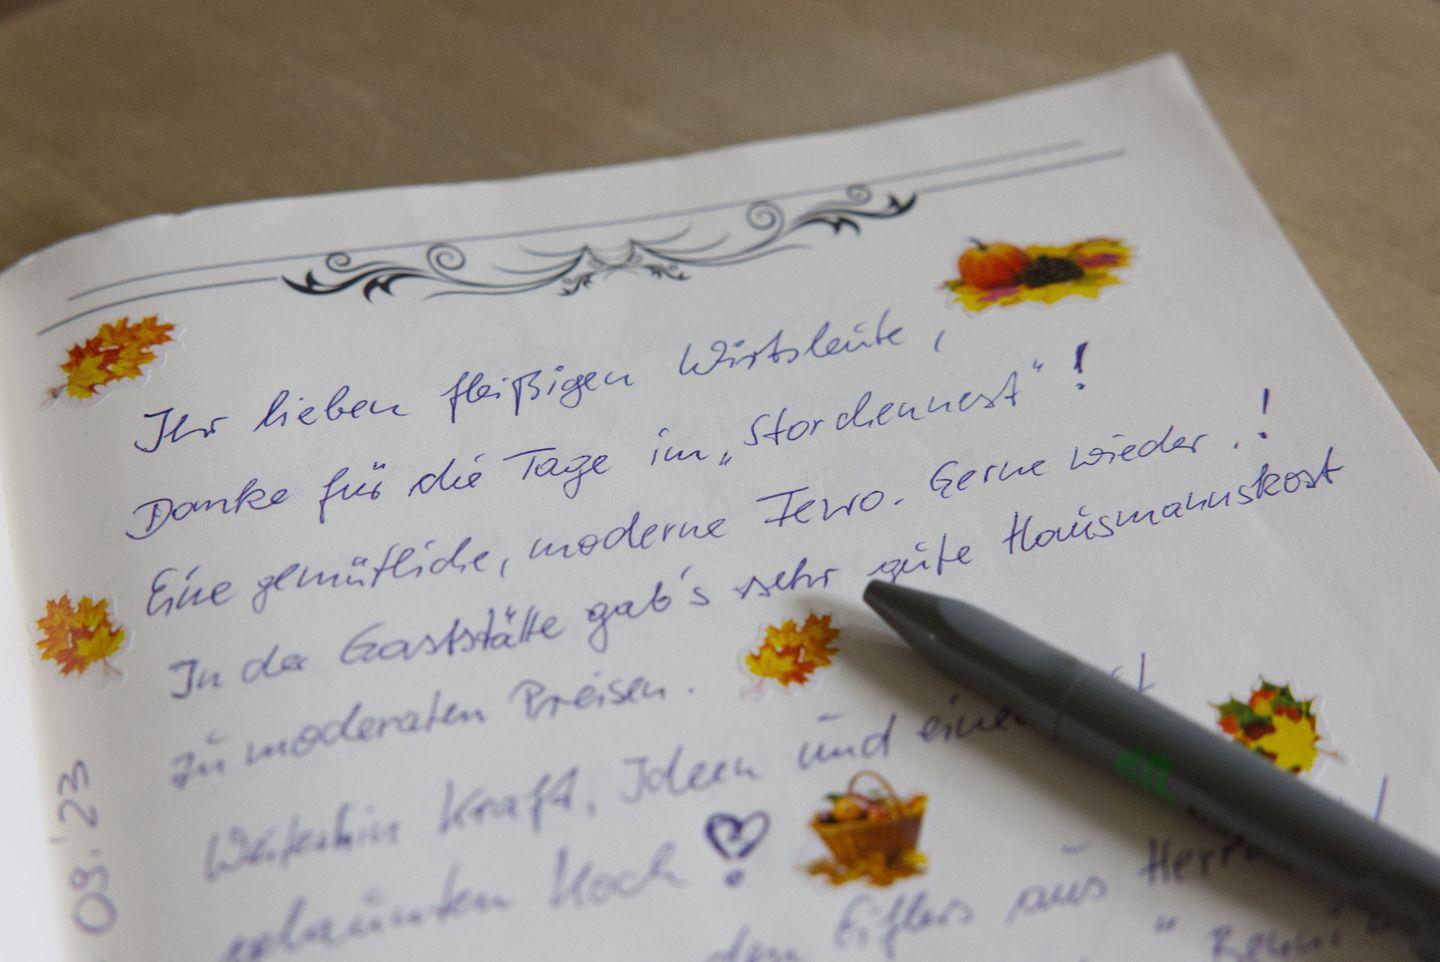 Ihr lieben fleißigen Wirtsleute,
Danke für die Tage im „Storchennest“!
Eine gemütliche, moderne Fewo. Gerne wieder.!
In der Gaststätte gab's sehr gute Hausmannskost
zu moderaten Preisen.
Weiterhin Kraft, Ideen und einen
Koch
den Eiflers aus
09.'23